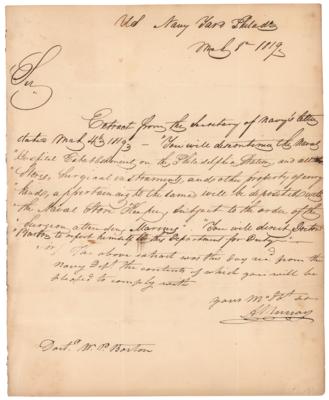 US Navy Yard Philada
Mah 8th 1819
Sir
Extract from the Secretary of Navy's letter
dated Mah 4th 1819 — "You will discontinue the Naval
Hospital Establishment, on the Philadelphia Station, and all the
Stores, Surgical instruments, and other property of every
kind, appertaining to the same will be deposited with
the Naval Store Keeper, subject to the order of the
Surgeon attending Marines." You will direct Doctor
Barton to report himself to this Department for Duty"
The above extract was this day recd from the
Navy Dept the contents of which you will be
pleased to comply with
yours
A Murray
Doctr W. P. Barton